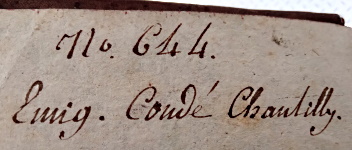 No. 644.
Emig. Condé Chantilly.